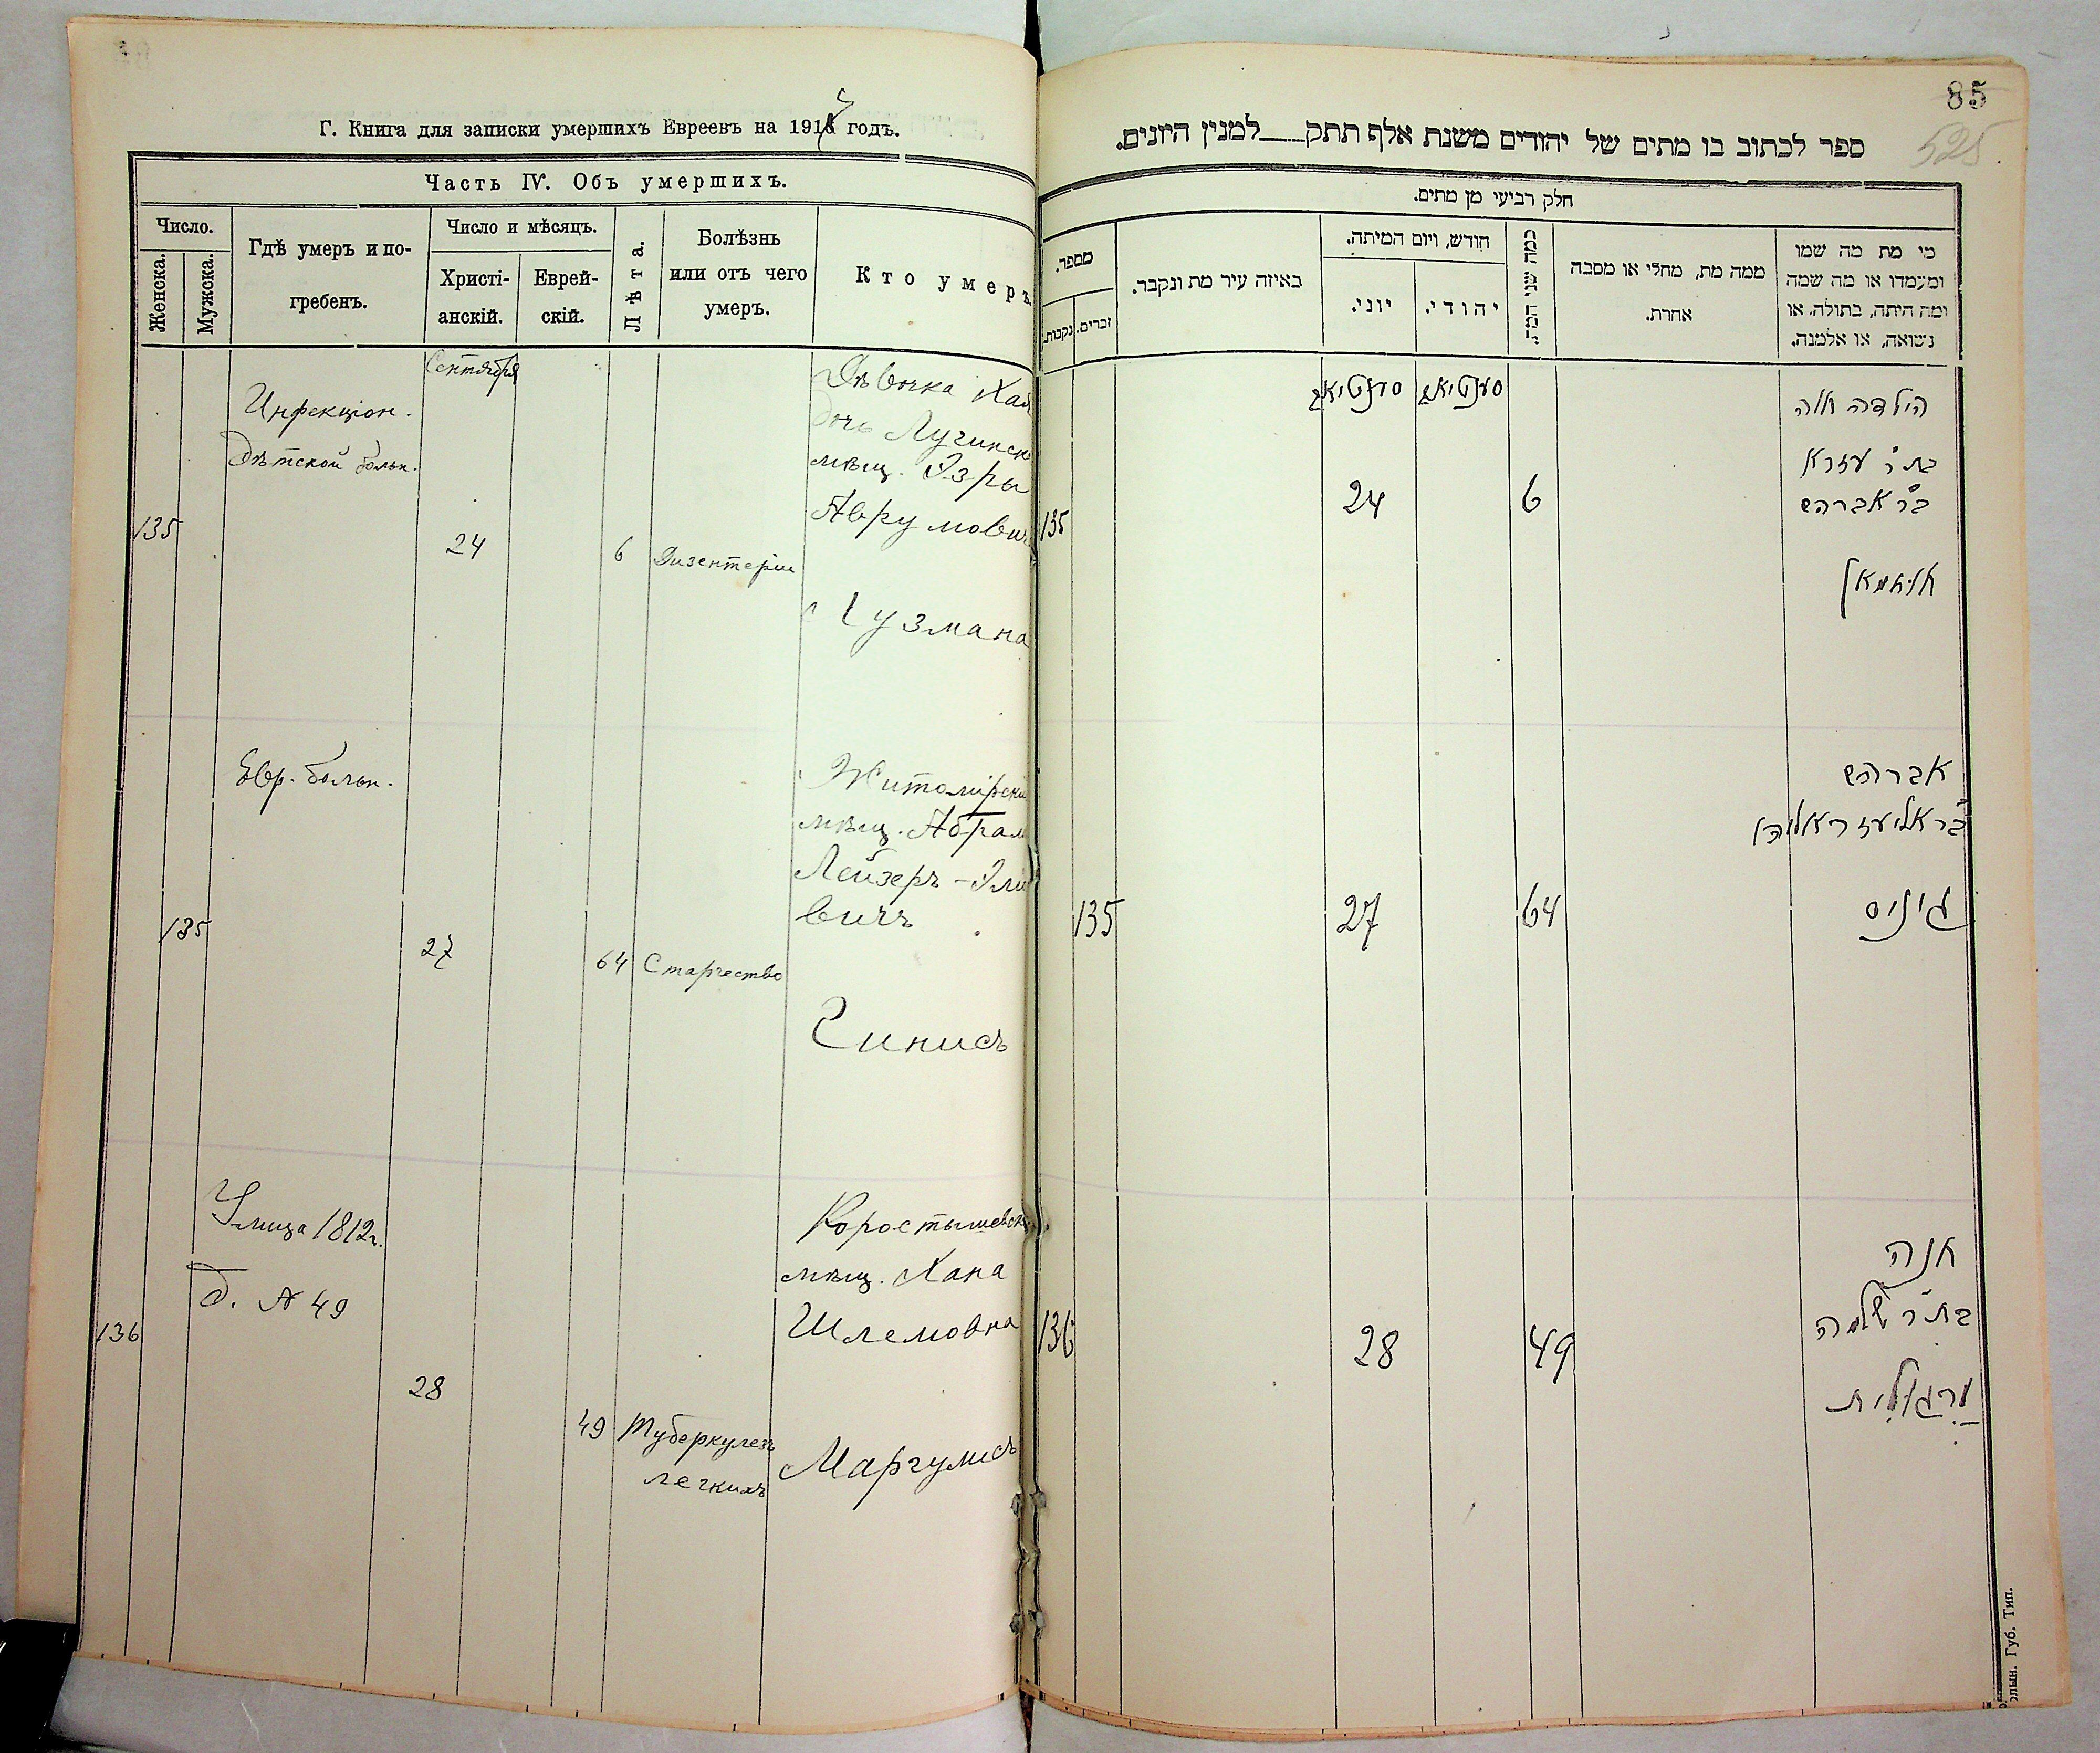 Г. Книга для записки умершихъ Евреевъ на 191 годъ.
Часть IV. Объ умершихъ.
Число.
Женска.
Мужска.
Гдѣ умеръ и по-
гребенъ.
Число и мѣсяцъ.
Христі-
анскій.
Еврей-
скій.
Лѣта.
Болѣзнь
или отъ чего
умеръ.
Кто умеръ.
Сентября
Инфекціон.
Дѣтской больн.
135
24
6
Дизентерія
Дѣвочка Хая
дочь Лугинск
мѣщ. Эзры
Аврумович
Гузмана
Евр. больн.
135
27
64
Старчество
Житомірскій
мѣщ. Абрам
Лейзеръ-Эліо
вичъ
Гинисъ
Улица 1812г.
д. № 49
136
28
49
Туберкулезъ
легкихъ
Коростышевск
мѣщ. Хана
Шлемовна
Маргулисъ
85
525
ספר לכתוב בו מתים של יהודים משנת אלף תתק למנין היונים.
חלק רביעי מן מתים.
מספר.
נקבות.
זכרים.
באיזה עיר מת ונקבר.
חודש, ויום המיתה.
יוני.
יהודי.
כמה שני המת.
ממה מת, מחלי או מסבה
אחרת.
מי מת מה שמו
ומעמדו או מה שמה
ומה היתה, בתולה, או
נשואה, או אלמנה.
135
24
6
הילדה חיה
בת ר' עזרא
ב"ר אברהם
135
27
64
אברהם
ב"ר אליעזר אליהו
גיניס
136
28
49
חנה
בת ר' שלמה
מרגולית
олын. Губ. Тип.